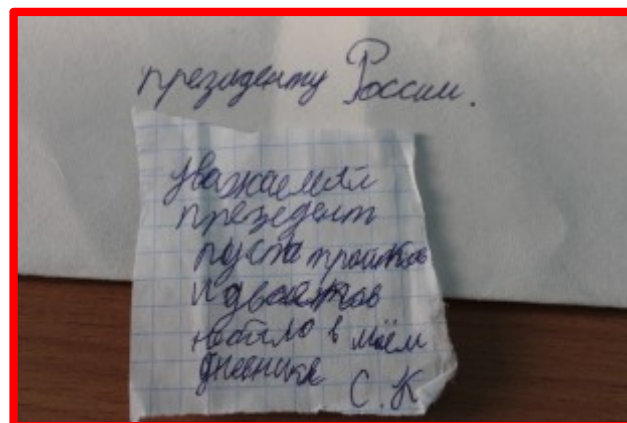 президенту России.
уважаемый
презедент
пуста троиков
и двоиков
небыло в моём
дневнике
С.К